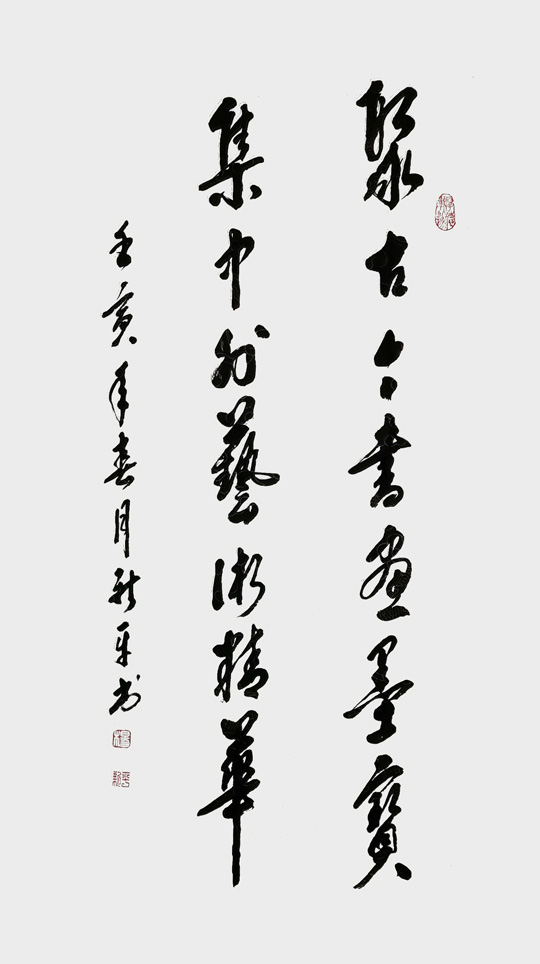 聚古今書畫墨寶
集中外藝術精華
壬寅年春月新平书